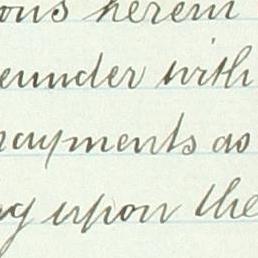 ous herein
eunder with
payments as
ng upon the